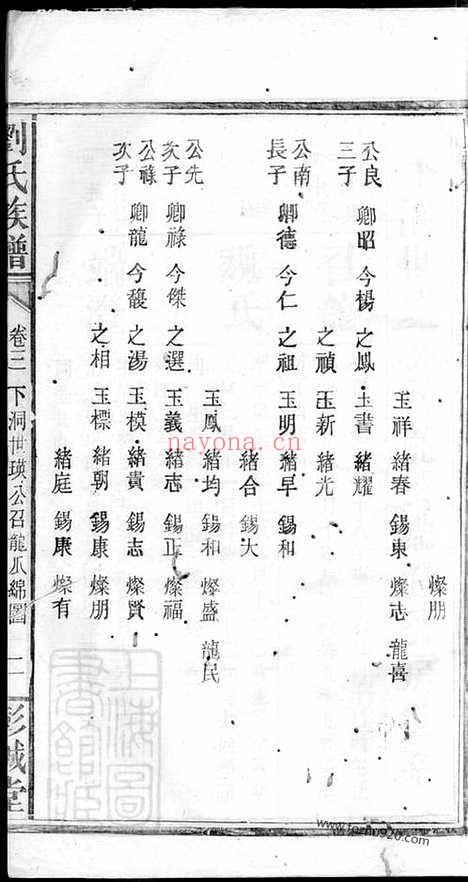 燦朋
玉祥 緒春 錫東 燦志 龍喜
公良三子 卿昭 今楊 之鳳 玉書 緒耀
之禎 玉新 緒光
公南長子 卿德 今仁 之祖 玉明 緒早 錫和
緒合 錫大
玉鳳 緒均 錫和 燦盛 龍民
公先次子 卿祿 今傑 之選 玉義 緒志 錫正 燦福
公祿次子 卿龍 今馥 之湯 玉模 緒貴 錫志 燦賢
之相 玉標 緒朝 錫康 燦朋
緒庭 錫康 燦有
劉氏族譜 卷三 下洞世瑛公召龍瓜綿圖 二 彭城堂
上海圖書館藏
nayona.cn
www.tozhu920.com